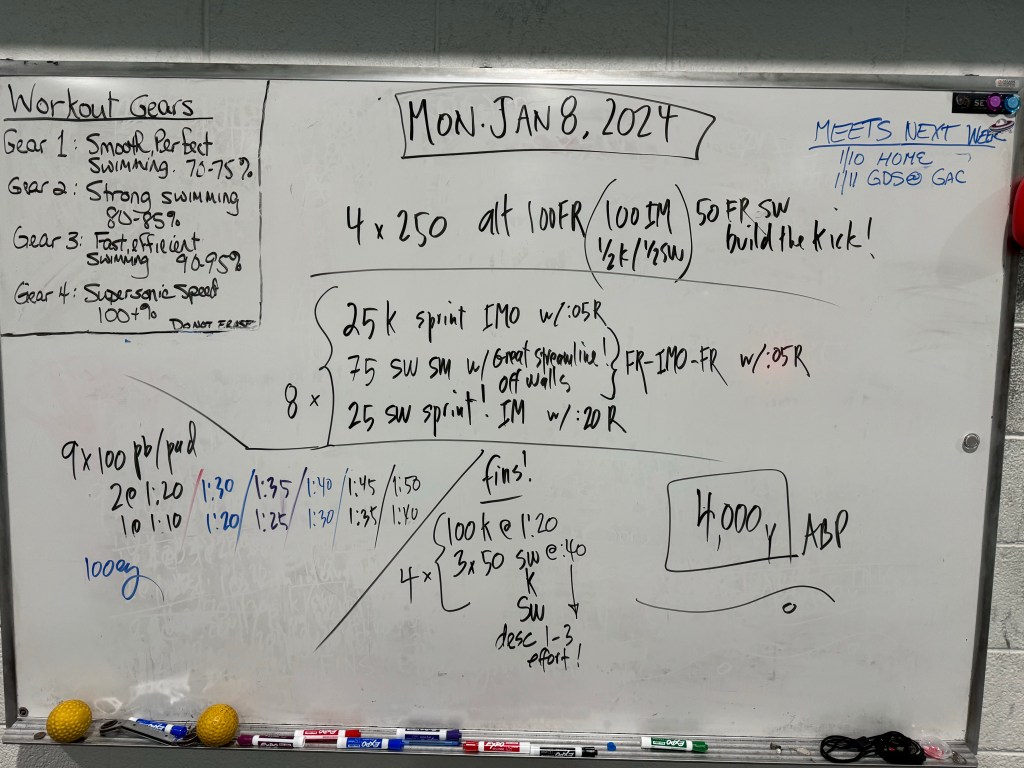 Workout Gears
Gear 1: Smooth, Perfect
Swimming. 70-75%
Gear 2: Strong swimming
80-85%
Gear 3: Fast, efficient
Swimming 90-95%
Gear 4: Supersonic Speed
100+%
DO NOT ERASE
MON. JAN 8, 2024
MEETS NEXT WEEK
1/10 HOME
1/11 GDS @ GAC
4 x 250 alt 100FR (100 IM) 50 FR SW
1/2 K / 1/2 SW build the kick!
8 x
25 k sprint IMO w/:05R
75 SW SM w/ Great streamline!
off walls
FR-IMO-FR w/:05R
25 SW sprint! IM w/:20R
9 x 100 pb/pad
2@ 1:20 / 1:30 / 1:35 / 1:40 / 1:45 / 1:50
1@ 1:10 1:20 1:25 1:30 1:35 1:40
100 ey
fins!
4 x
100 k @ 1:20
3 x 50 SW @ :40
K
SW
desc 1-3
effort!
4,000 y ABP
EXPO
EXPO
EXPO
EXPO